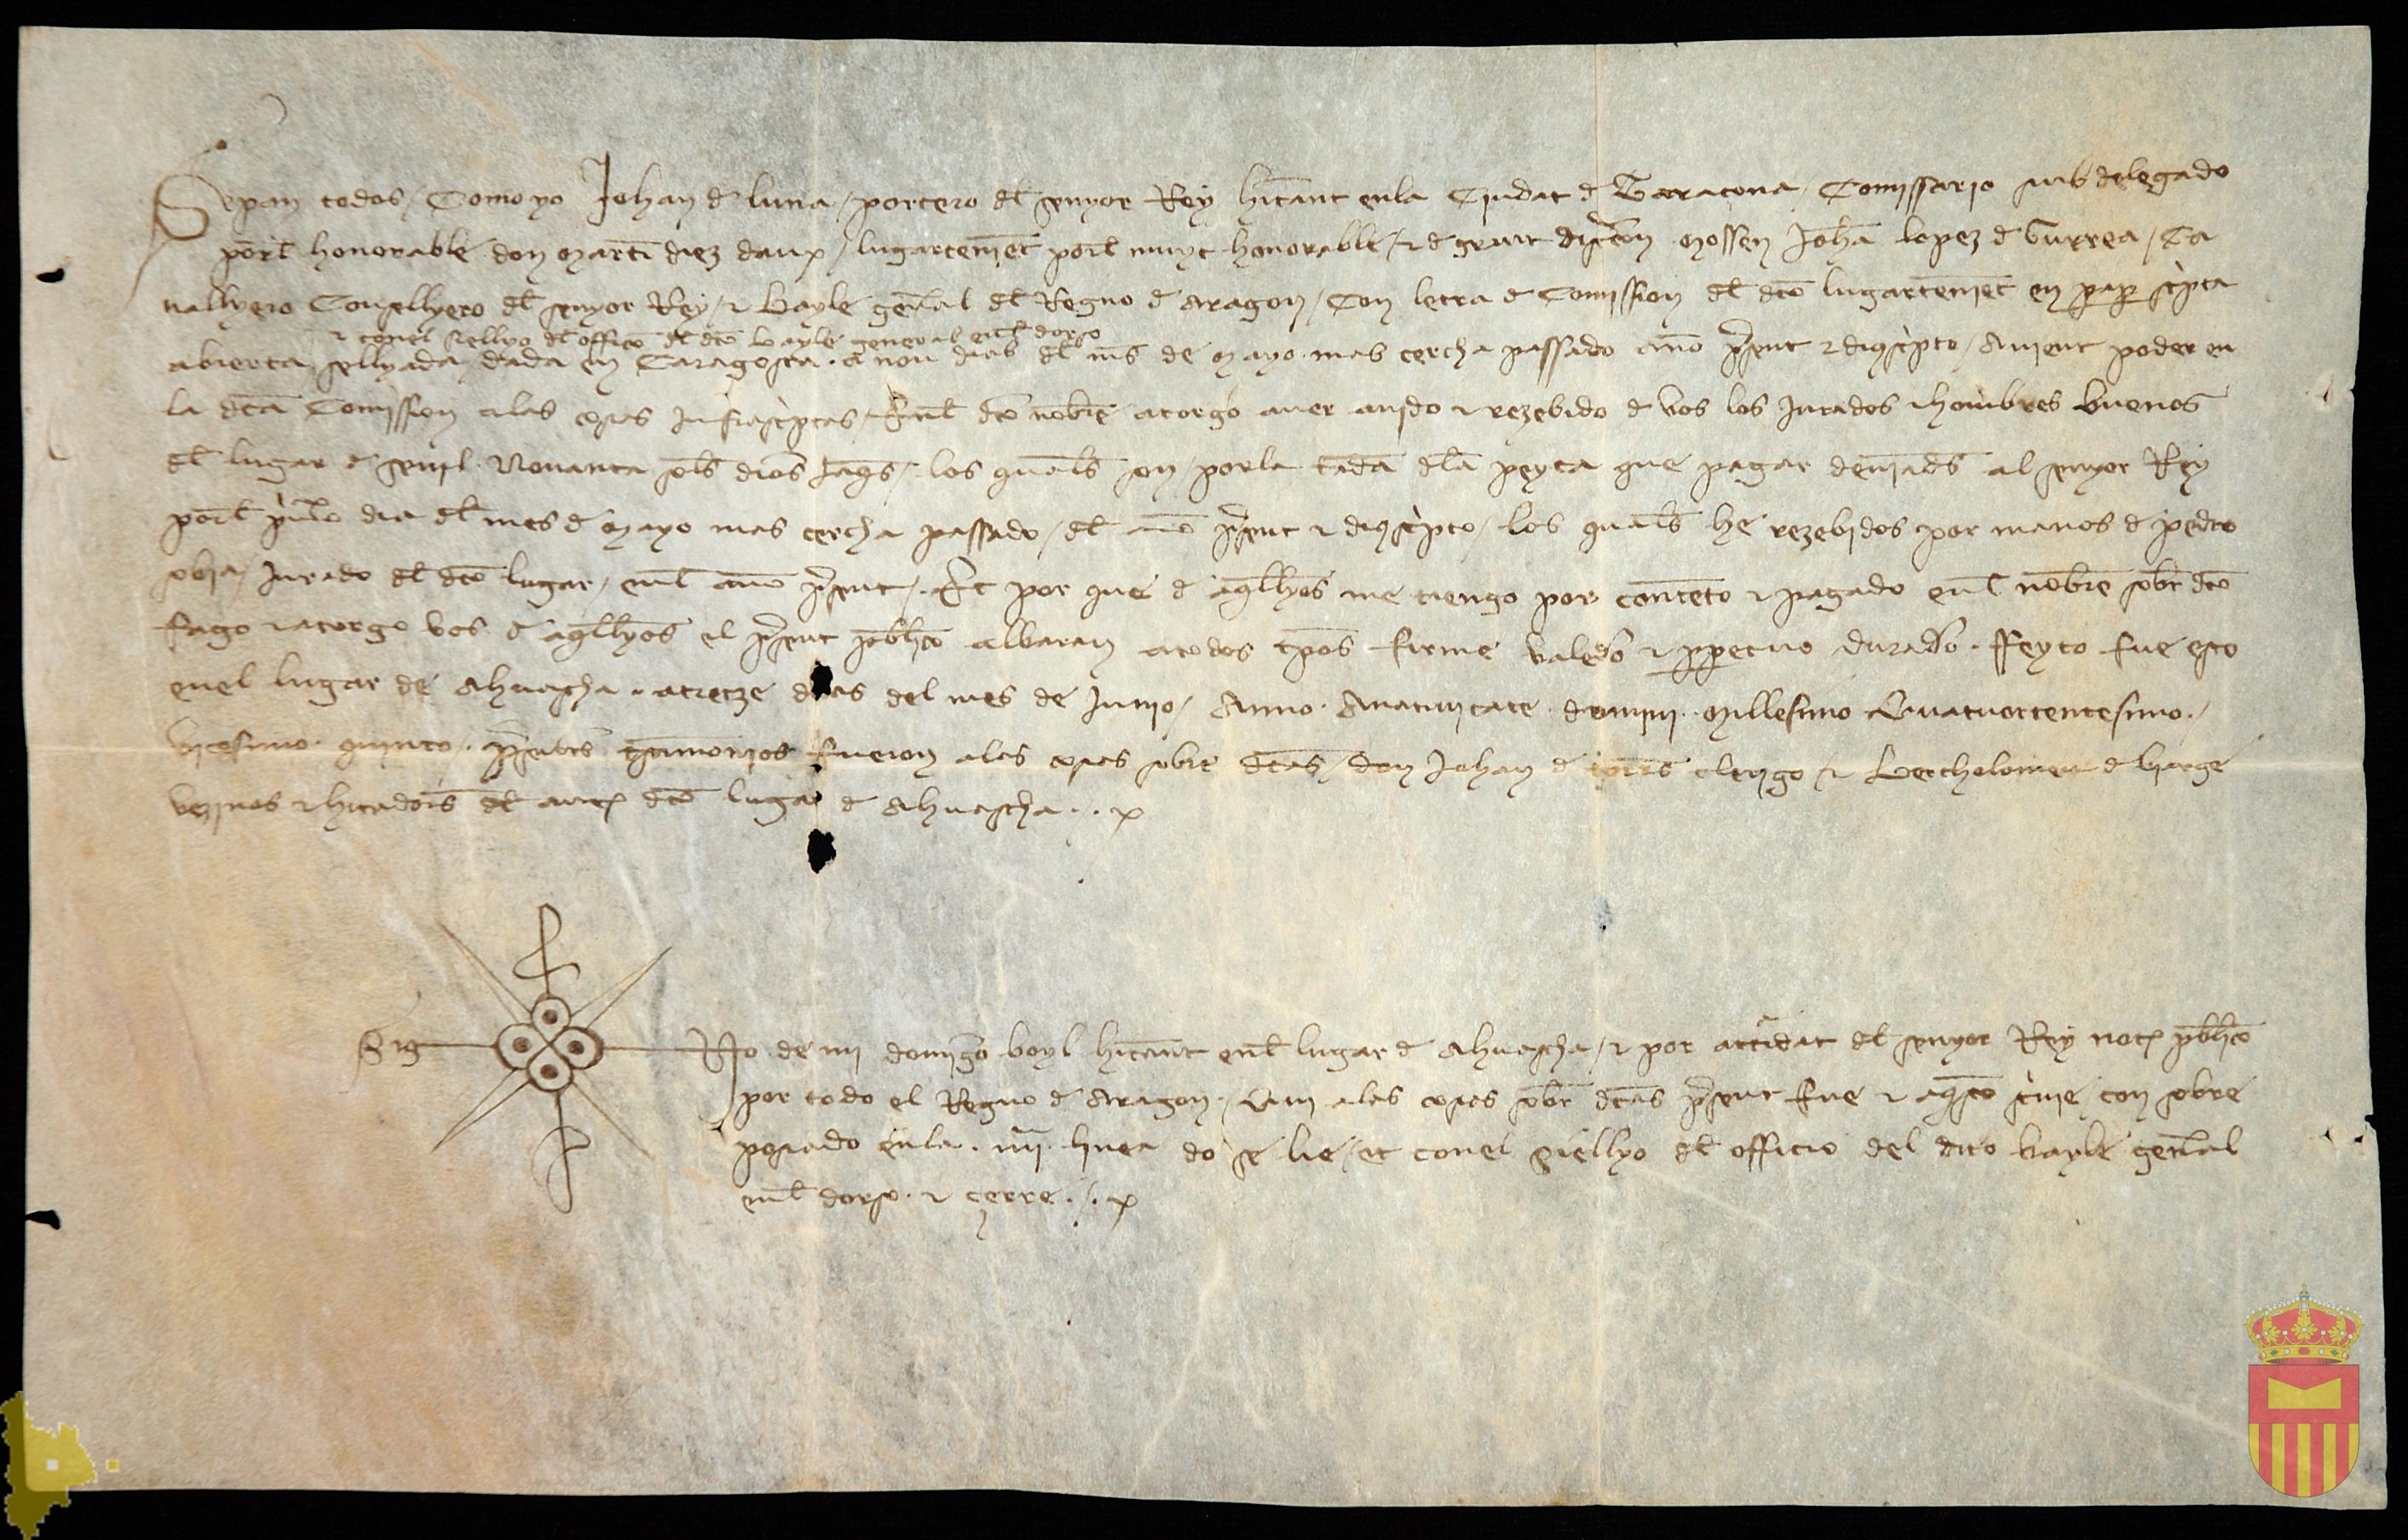 Sepan todos / Como yo Johan d luna / portero dl senyor Rey hitant enla Ciudat d Taraçona / Comissario subdelegado
porl honorable don martin diez daux / lugartenient porl muyt honorable / et d grant discrecion Mossen Johan lopez d Gurrea / Ca
vallyero Consellyero dl senyor Rey / et Bayle general dl Regno d Aragon / Con letra d Comission dl dito lugartenient en paper scripta
et conel siellyo dl officio dl dito bayle general enel dorso
abierta sellyada dada en Caragoça . a nou dias dl mes de Mayo . mas cercha passado anno present et diuscripto / Avient poder en
la dita Comission alas cosas Infrascriptas / Enl dito nombre atorgo aver avido et rezebido d vos los Jurados et hombres buenos
dl lugar d Novanta sols dineros Jaqs / los quals son porla tada dla peyta que pagar deviades al senyor Rey
porl primero dia dl mes d Mayo mas cercha passado / dl anno present et diuscripto / los quals he rezebidos por manos d pedro
Jurado dl dito lugar / enl anno present / Et por que d aquellyos me tiengo por contento et pagado enl nombre sobredito
fago et atorgo vos d aquellyos el present publico albaran atodos tiempos firme valedero et perpetuo duradero . ffeyto fue esto
enel lugar de Ahuascha . a tretze dias del mes de Junio / Anno Anativitate domini Millesimo Quatuorcentesimo /
vicesimo quinto / presentes testimonios fueron alas cosas sobre ditas / don Johan d clerigo / et Bertholomeu d
vezinos et hitadores dl antes dito lugar d Ahuascha
Sig
No de mi domingo boyl hitant enl lugar d Ahuascha / et por actoridat dl senyor Rey notario publico
por todo el Regno d Aragon / Qui alas cosas sobre ditas present fue et aquesto scrivie con sobre
posado enla . IIII . linea do se lie / et conel siellyo dl officio del dito bayle general
enl dorso . et cerre